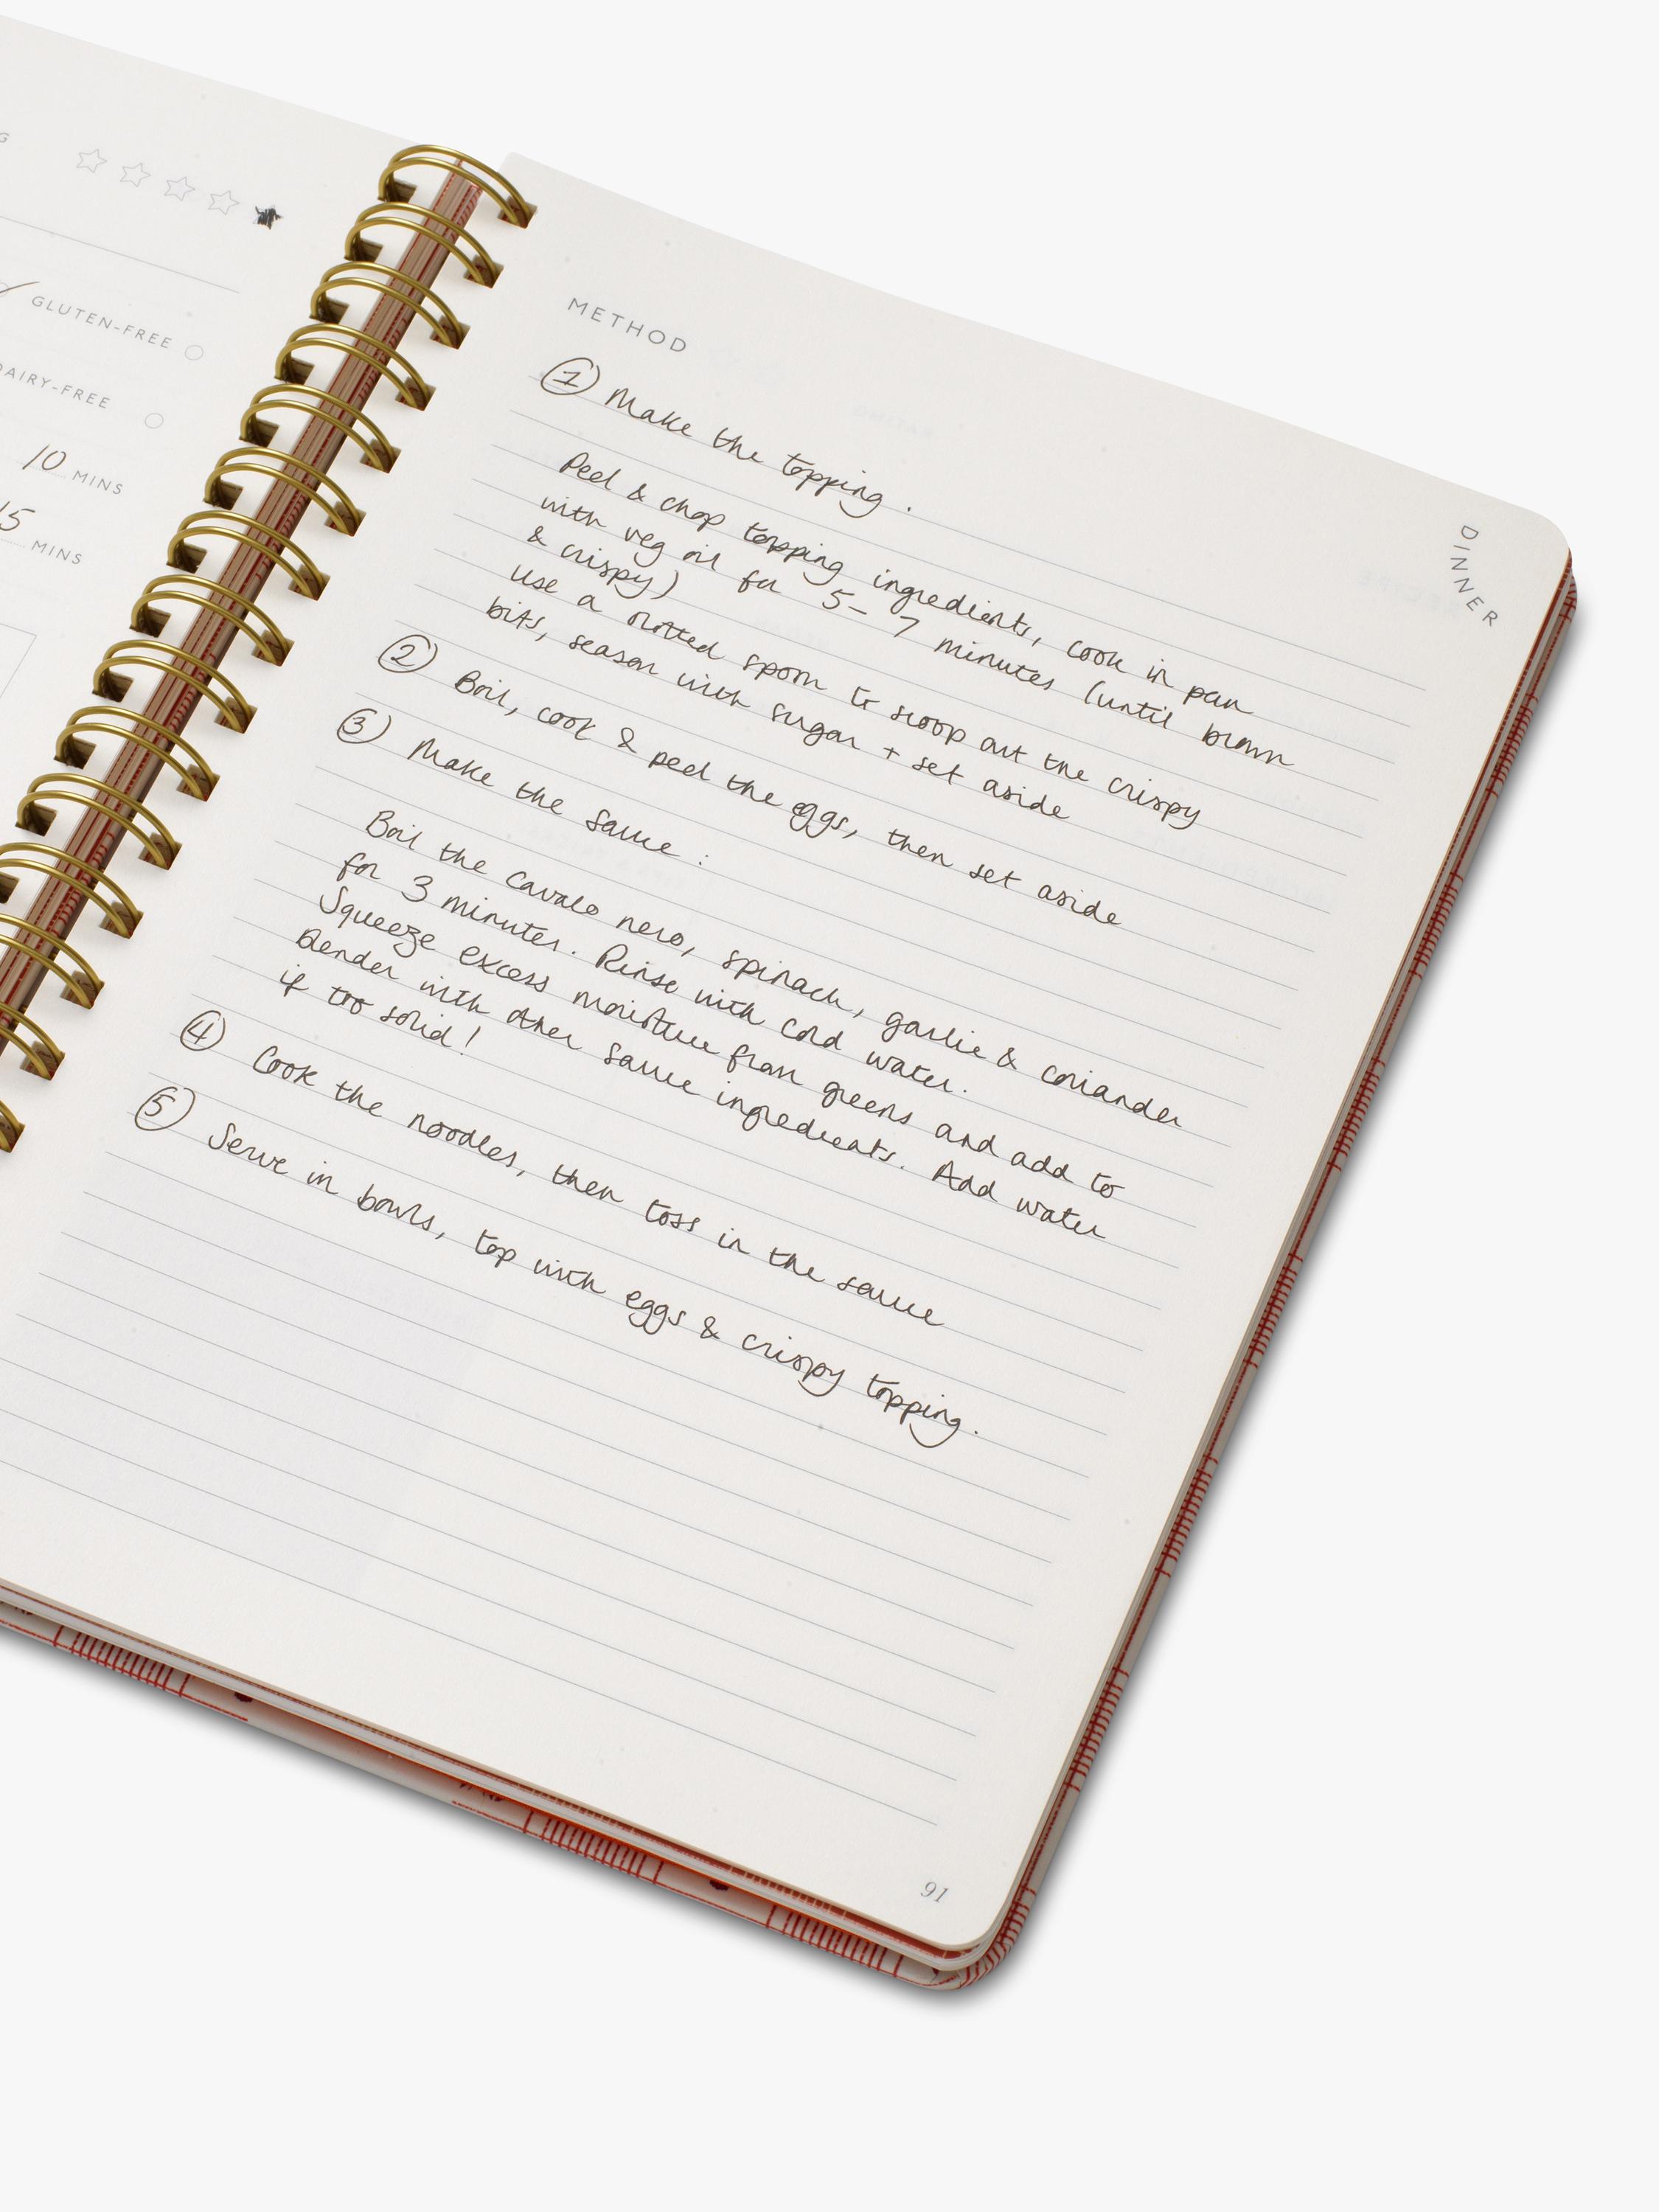 G
GLUTEN-FREE
DAIRY-FREE
10 MINS
15 MINS
METHOD
① Make the topping.
Peel & chop topping ingredients, cook in pan
with veg oil for 5-7 minutes (until brown
& crispy)
Use a slotted spoon to scoop out the crispy
bits, season with sugar + set aside
② Boil, cook & peel the eggs, then set aside
③ Make the sauce:
Boil the cavalo nero, spinach, garlic & coriander
for 3 minutes. Rinse with cold water.
Squeeze excess moisture from greens and add to
blender with other sauce ingredients. Add water
if too solid!
④ Cook the noodles, then toss in the sauce
⑤ Serve in bowls, top with eggs & crispy topping.
DINNER
91